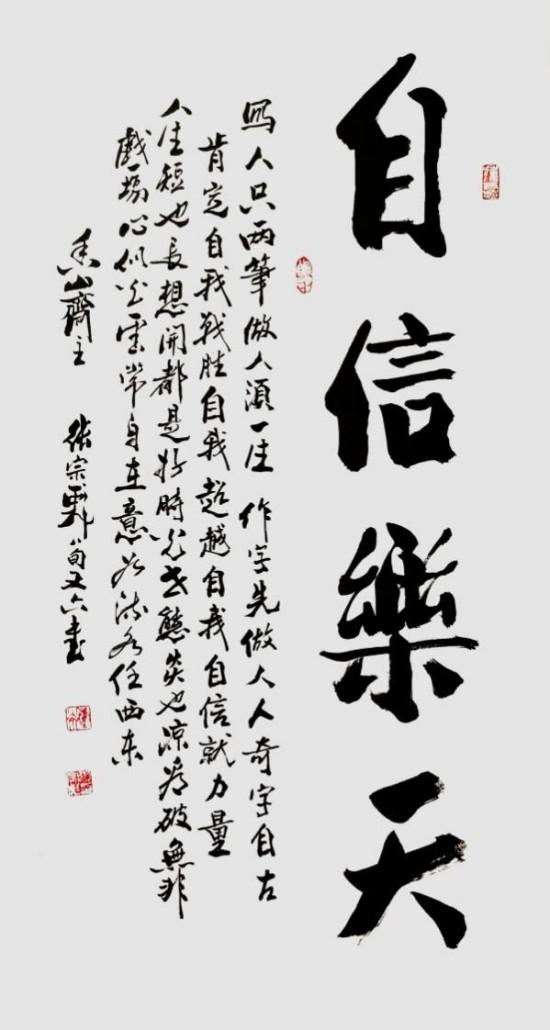 自信樂天
寫人只兩筆做人須一生作字先做人人奇字自古
肯定自我戰胜自我超越自我自信就力量
人生短也長想開都是好時光世態炎也凉看破無非
戲一場心似白雲常自在意如流水任西东
香山齋主 張宗 八旬又六書